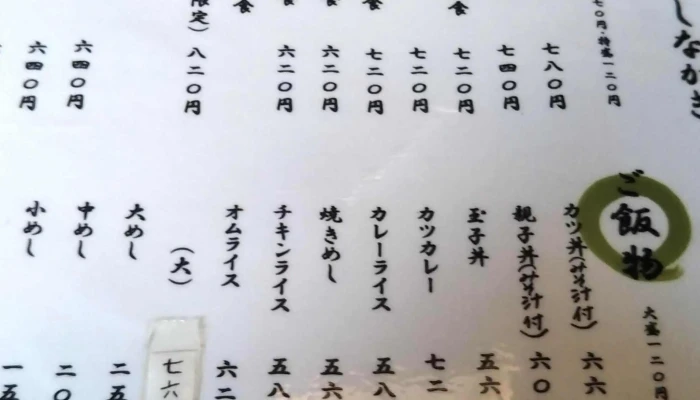 しながき
七〇円・特盛一二〇円
七八〇円
七四〇円
食 七二〇円
七二〇円
食 七二〇円
六二〇円
六二〇円
食
限定）八二〇円
六四〇円
六四〇円
ご飯物
大盛一二〇円
カツ丼（みそ汁付） 六六
親子丼（みそ汁付） 六〇
玉子丼 五六
カツカレー 七二
カレーライス 五八
焼きめし 五六
チキンライス 五八
オムライス 六二
（大） 七六
大めし 二五
中めし 二〇
小めし 一五